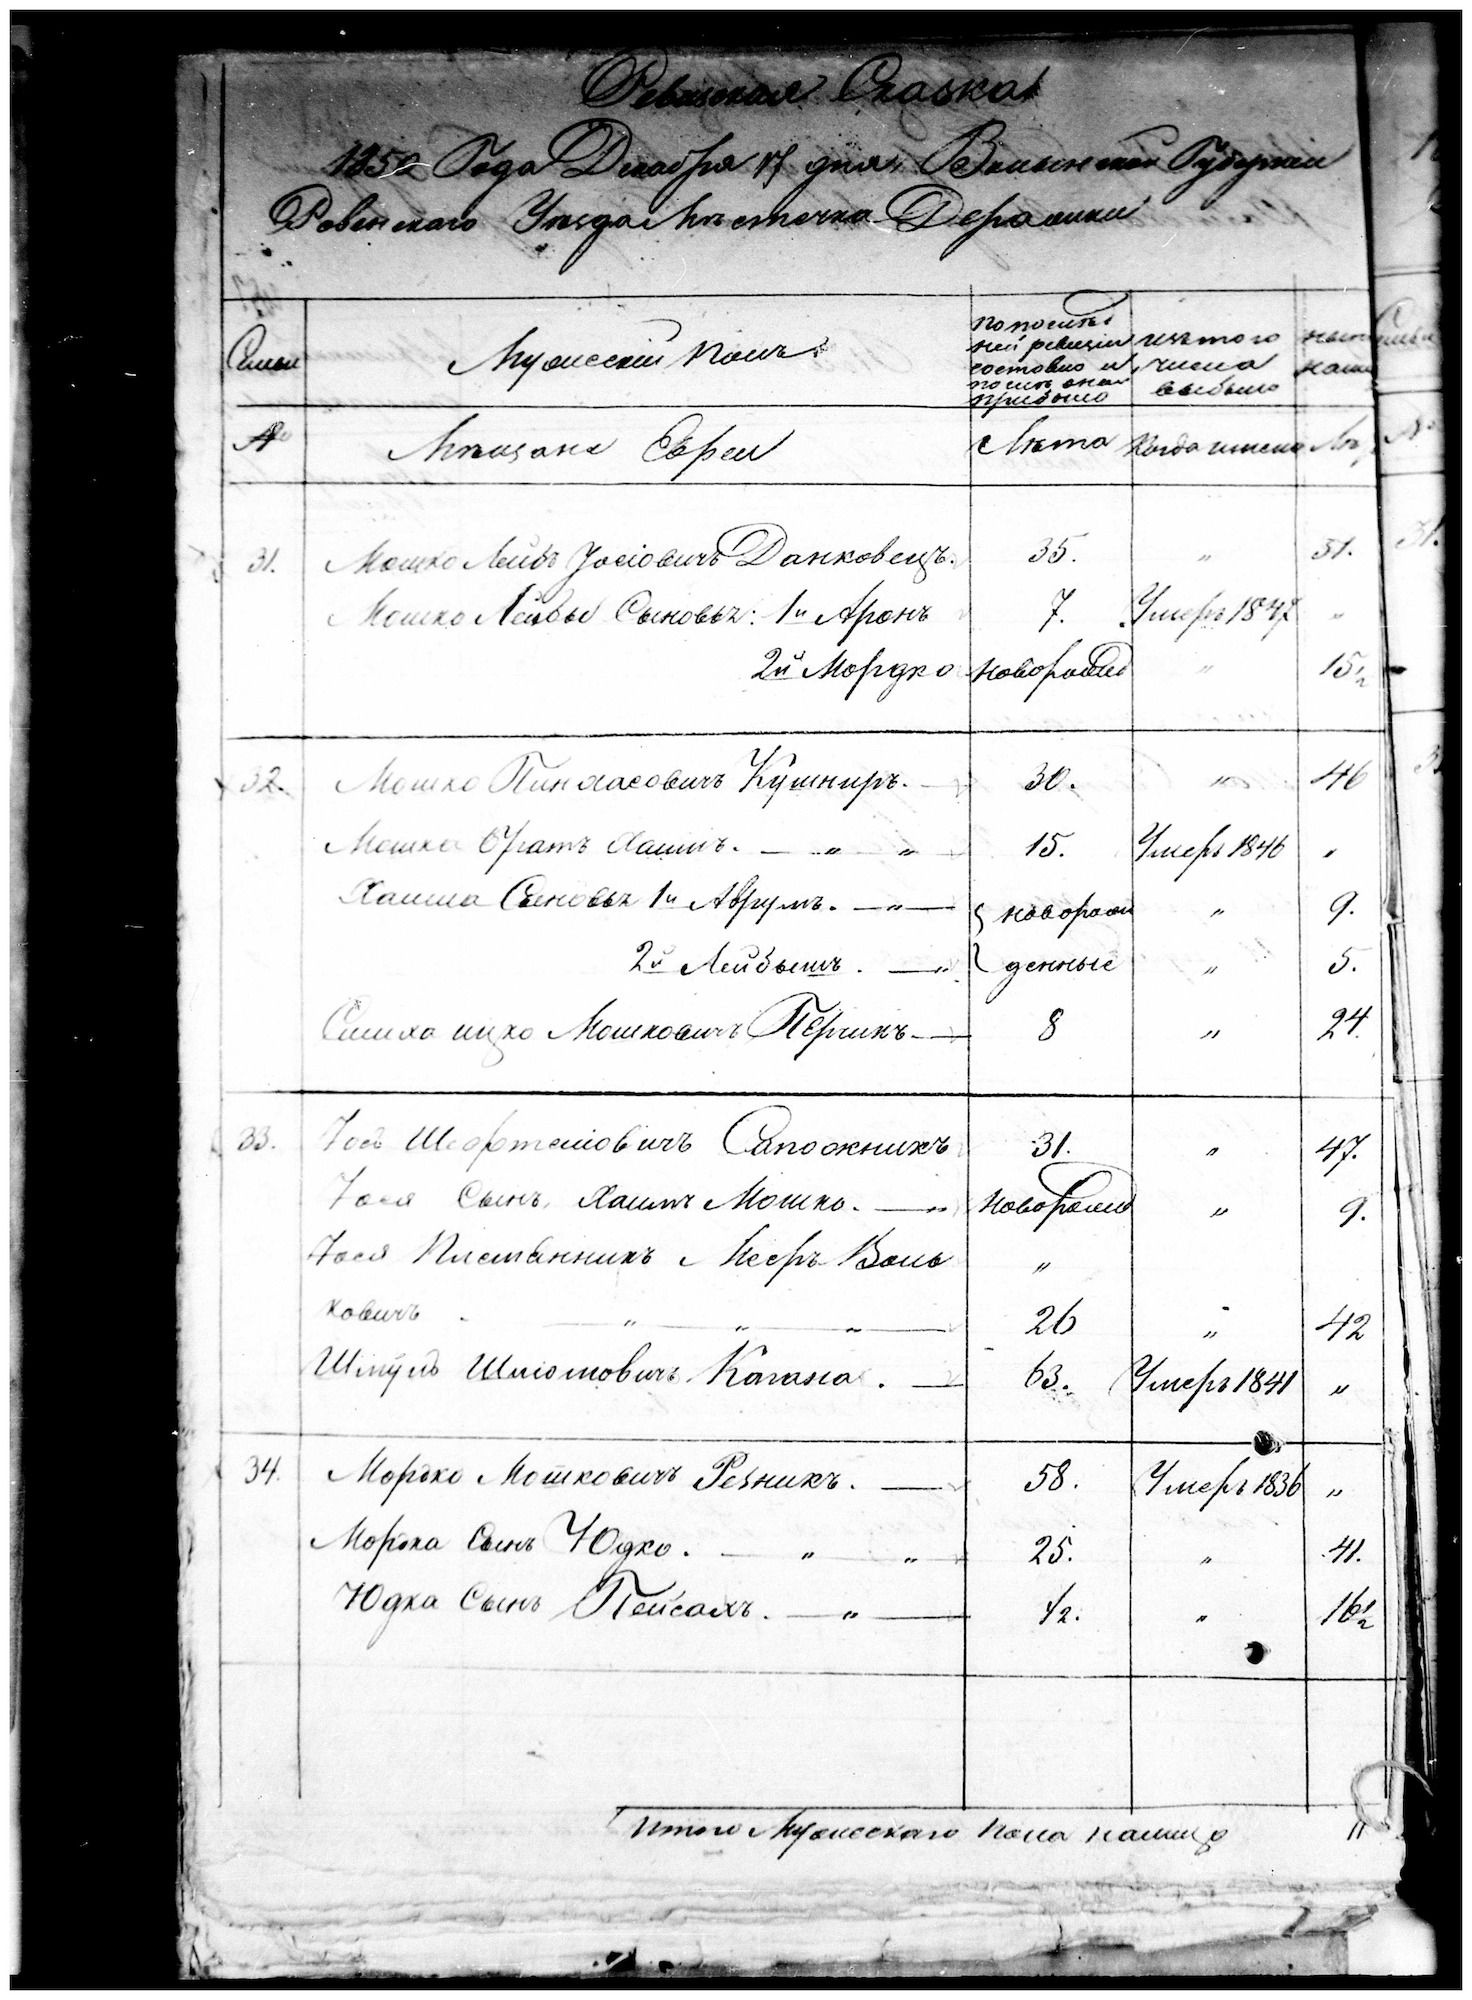 Ревизская Сказка
1850 Года Декабря 17 дня, Волынской Губернии
Ровенского Уезда Местечка Деражни
Семьи
Мужеский полъ
По последней ревизии состояло и после оной прибыло
изъ того числа выбыло
ныне нали
№
Мещане Евреи
Лета
Когда имено
Ле
31. Мошко Лейбъ Јосiовичъ Данковецъ. 35. " 51.
Мошко Лейбы Сыновья: 1й Аронъ 7. Умеръ 1847 "
2й Мордко новорожд " 15½
32. Мошко Пинхасовичъ Кушниръ. 30. " 46
Мошка Братъ Хаимъ. — " — " 15. Умеръ 1846 "
Хаима Сыновья 1й Аврумъ. — " — новорож " 9.
2й Лейбышъ. — " денные " 5.
Симха ицко Мошковичъ Перчикъ — 8 " 24.
33. Іось Сапожникъ 31. " 47.
Іося Сынъ, Хаимъ Мошко. — " новорожд " 9.
Іося Племянникъ Мееръ Воль "
ковичъ . — " — " — " — 26 " 42
Шмуль Шлiомовичъ Кагана . — 63. Умеръ 1841 "
34. Мордко Мошковичъ Резникъ. — 58. Умеръ 1836 "
Мордка Сынъ Юдко. — " — " 25. " 41.
Юдка Сынъ Пейсахъ. — " — ½. " 16½
Итого Мужескаго пола налицо 11